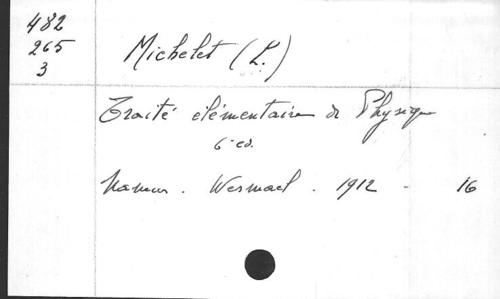 482
265
3
Michelet (L.)
Traité élémentaire de Physique
6e ed.
Namur. Wesmael. 1912 - 16